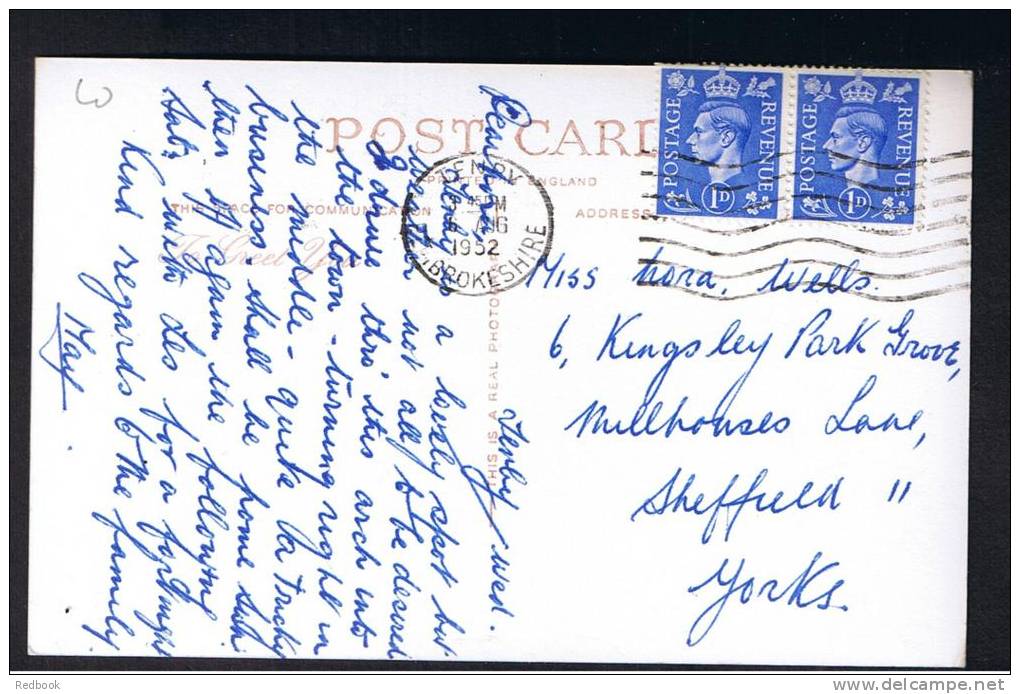 POST CARD
PRINTED IN ENGLAND
THIS SPACE FOR COMMUNICATION
ADDRESS
To Greet You
THIS IS A REAL PHOTO
POSTAGE REVENUE 1D
POSTAGE REVENUE 1D
TENBY
45 PM
AUG
1952
PEMBROKESHIRE
Tenby Wed.
Tenby is a lovely spot but
not all to be desired
I drove thro' this arch into
the town - turning right in
the middle - quite a tricky
business. Shall be home
then off again the following
Sat, with Les for a fortnight
Kind regards to the family
May.
Miss Nora, Wells.
6, Kingsley Park Grove,
Millhouses Lane,
Sheffield 11
Yorks.
3
Redbook
delcampe.net